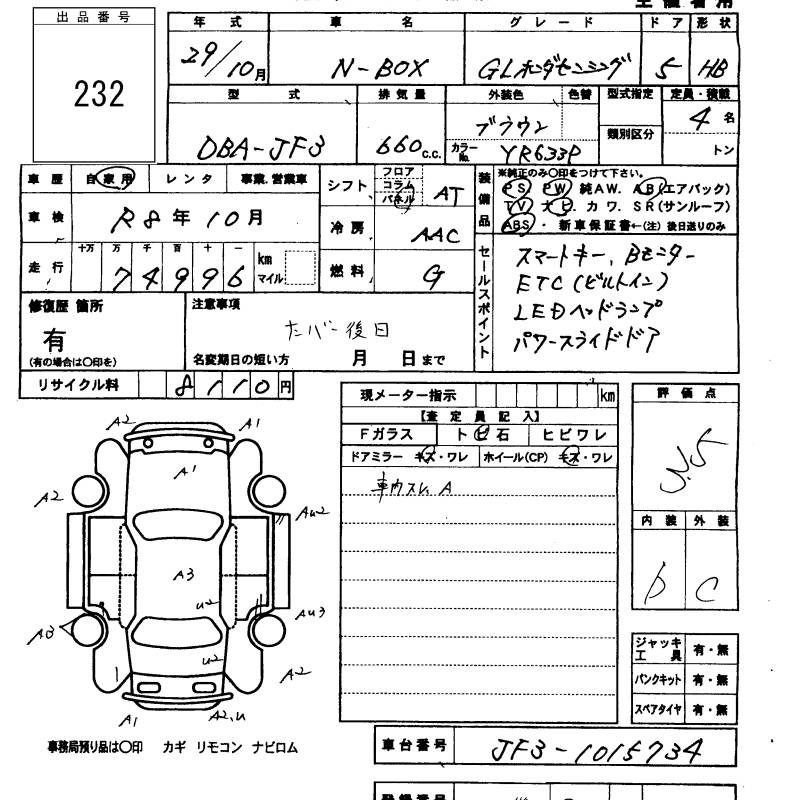 出品番号
232
年式 車名 グレード ドア 形状
29/10月 N-BOX GLホンダセンシング 5 HB
型式 排気量 外装色 色替 型式指定 定員・積載
DBA-JF3 660c.c. ブラウン 類別区分 4名
カラーNo. YR633P トン
車歴 自家用 レンタ 事業.営業車
車検 R8年10月
走行 十万 万 千 百 十 一
74996 km マイル
シフト フロア コラム パネル AT
冷房 AAC
燃料 G
装備品 ※純正のみ〇印をつけて下さい。
PS PW 純AW. AB(エアバック)
TV ナビ. カワ. SR(サンルーフ)
ABS ・ 新車保証書←(注) 後日送りのみ
セールスポイント
スマートキー、Bモニター
ETC(ビルトイン)
LEDヘッドランプ
パワースライドドア
修復歴 箇所
有
(有の場合は〇印を)
注意事項
ナンバー後日
名変期日の短い方 月 日まで
リサイクル料 8110円
現メーター指示 km
【査定員記入】
Fガラス トビ石 ヒビワレ
ドアミラー キズ・ワレ ホイール(CP) キズ・ワレ
車内スレ A
評価点
内装 外装
D C
A2 A1
A1
A2 AU2
A3
U2
A3 AU3
U2
A2
A1 A2,U
ジャッキ工具 有・無
パンクキット 有・無
スペアタイヤ 有・無
事務局預り品は〇印 カギ リモコン ナビロム
車台番号 JF3-1015734